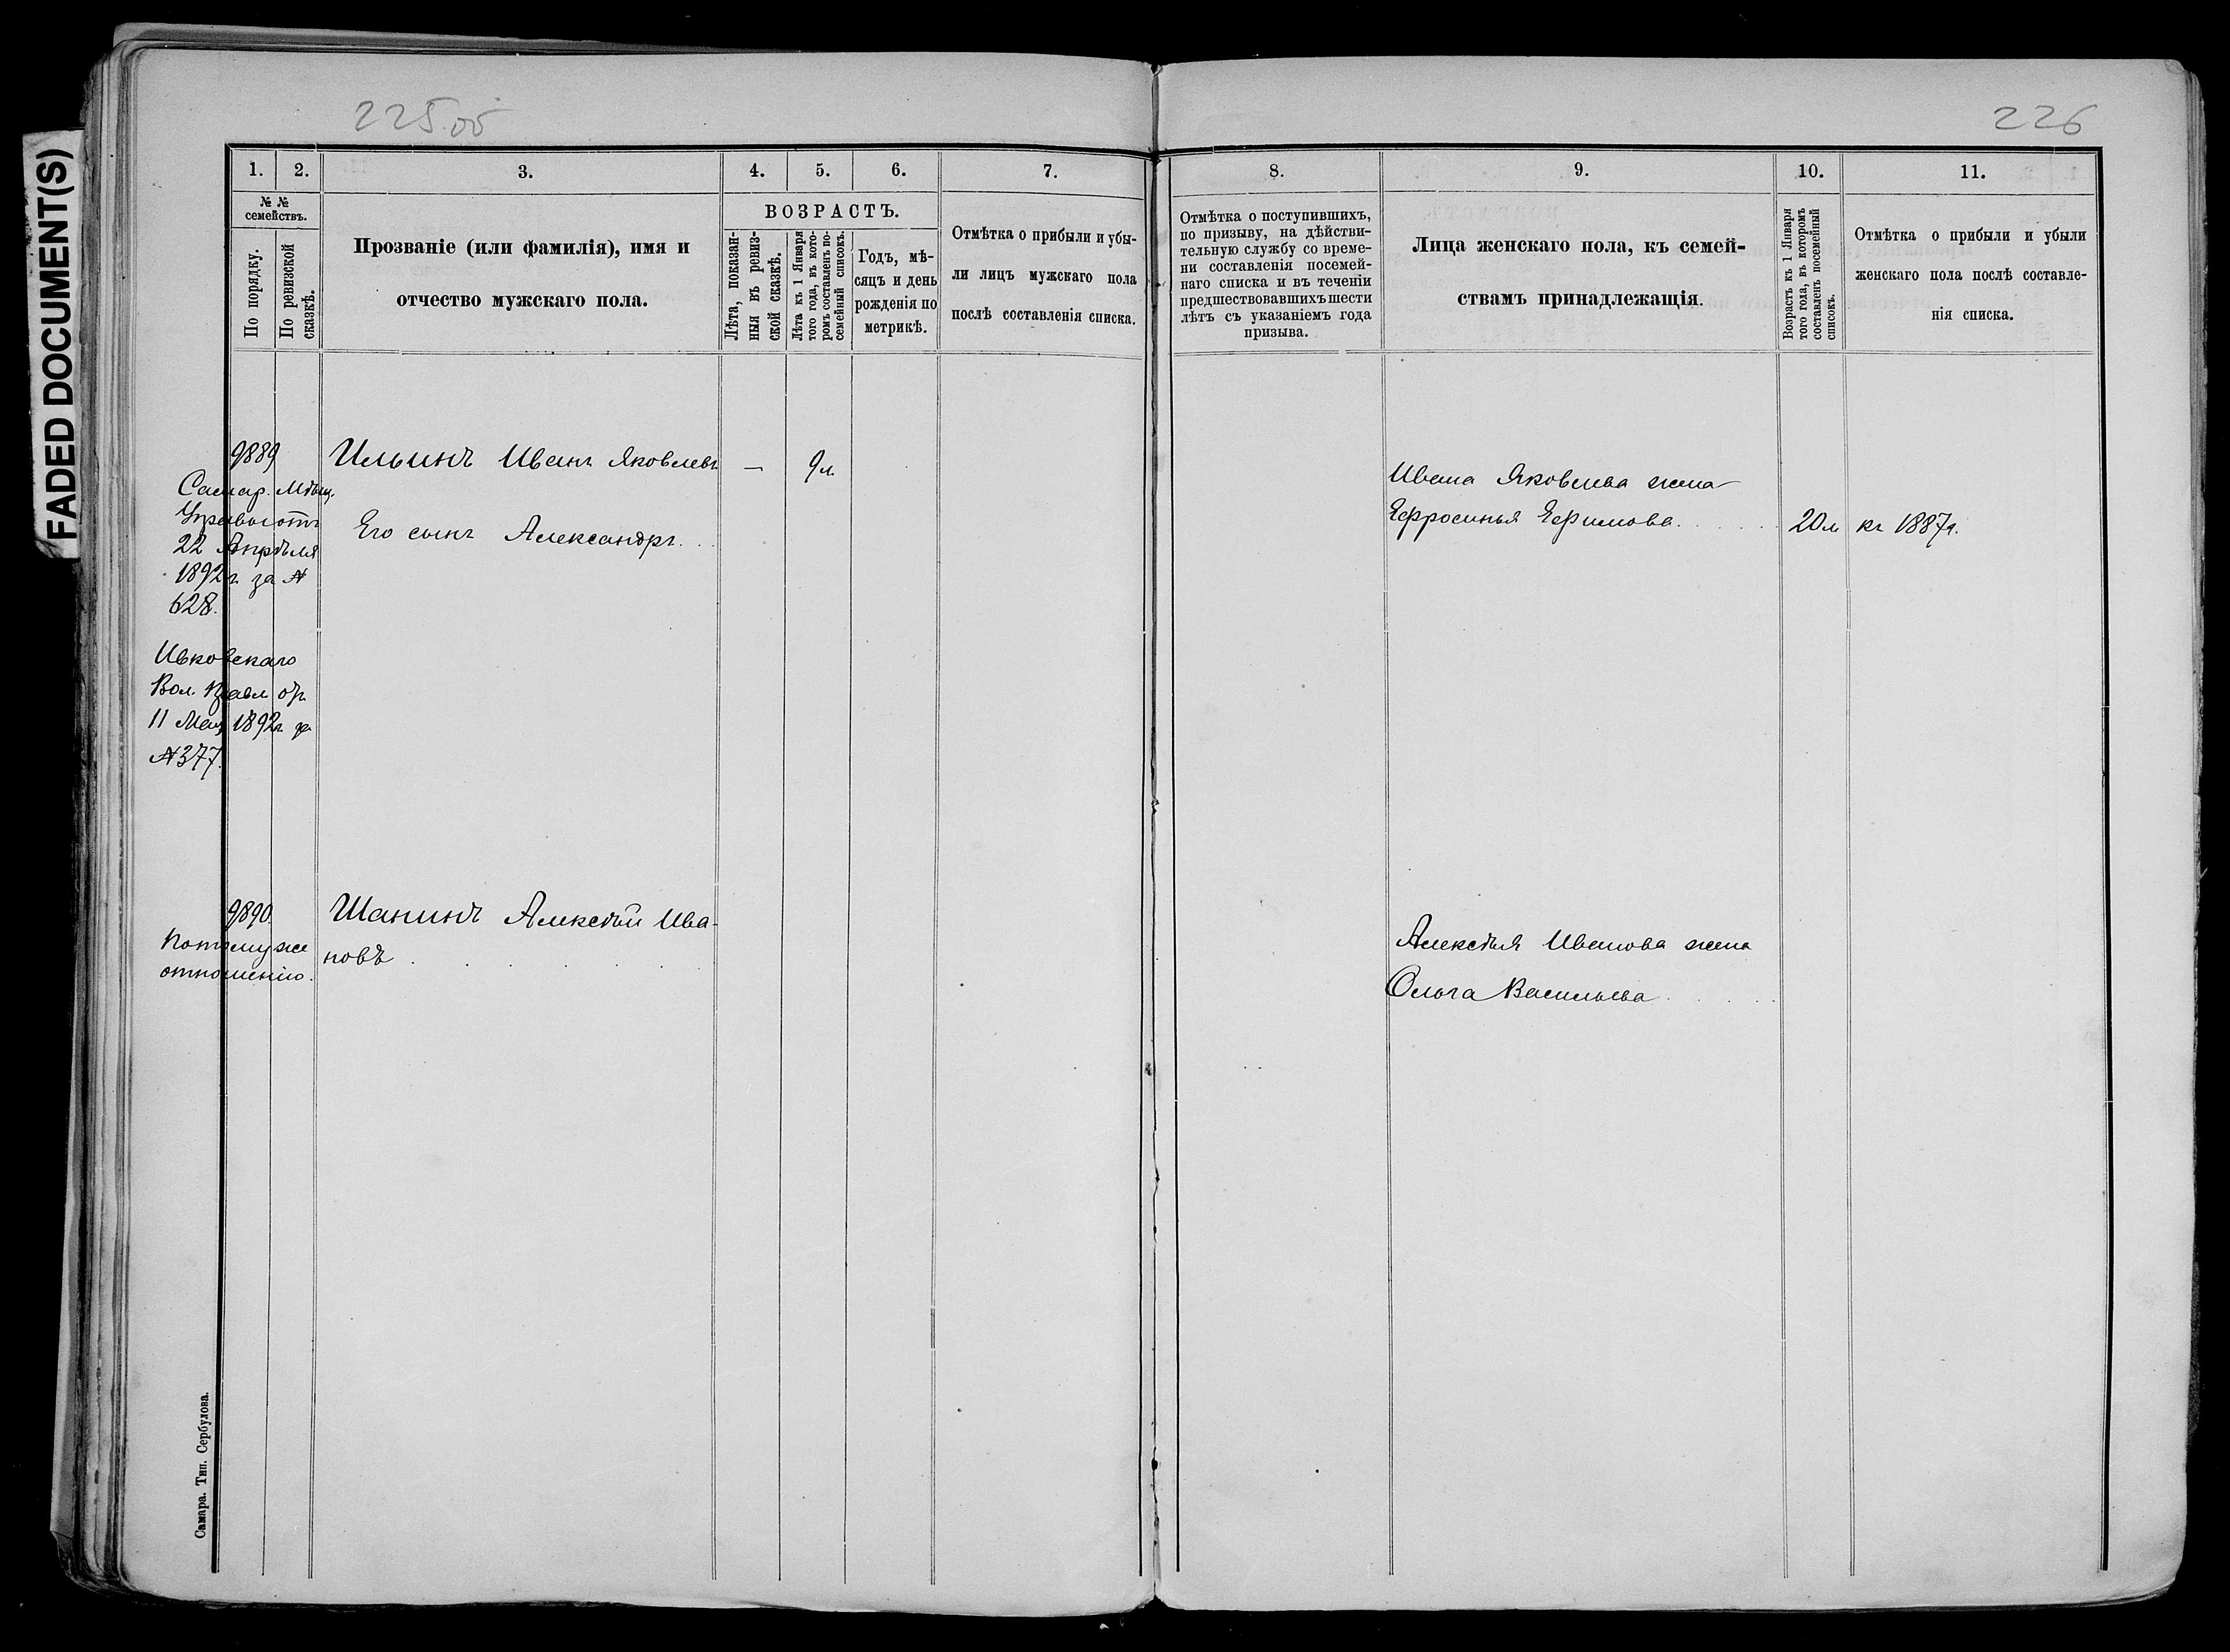 FADED DOCUMENT(S)
225 об
1.
2.
3.
4.
5.
6.
7.
№ №
семействъ.
По порядку.
По ревизской
сказкѣ.
Прозваніе (или фамилія), имя и
отчество мужскаго пола.
ВОЗРАСТЪ.
Лѣта, показан-
ныя въ ревиз-
ской сказкѣ.
Лѣта къ 1 Января
того года, въ кото-
ромъ составленъ по-
семейный списокъ.
Годъ, мѣ-
сяцъ и день
рожденія по
метрикѣ.
Отмѣтка о прибыли и убы-
ли лицъ мужскаго пола
послѣ составленія списка.
9889
Самар. Мѣщ.
Управы отъ
22 Апрѣля
1892 г. за №
628.
Ильинъ Иванъ Яковлевъ
—
9 л.
Его сынъ Александръ.
Вол. Правл. от
11 Мая 1892 г. за
№ 377.
9890.
По тому же
отношенію.
Шанинъ Алексѣй Ива-
новъ
Самара. Тип. Сербулова.
226
8.
9.
10.
11.
Отмѣтка о поступившихъ,
по призыву, на дѣйстви-
тельную службу со време-
ни составленія посемей-
наго списка и въ теченіи
предшествовавшихъ шести
лѣтъ съ указаніемъ года
призыва.
Лица женскаго пола, къ семей-
ствамъ принадлежащія.
Возрастъ къ 1 Января
того года, въ которомъ
составленъ посемейный
списокъ.
Отмѣтка о прибыли и убыли
женскаго пола послѣ составле-
нія списка.
Ивана Яковлева жена
Ефросинья Ефимова.
20 л
къ 1887 г.
Алексѣя Иванова жена
Ольга Васильева